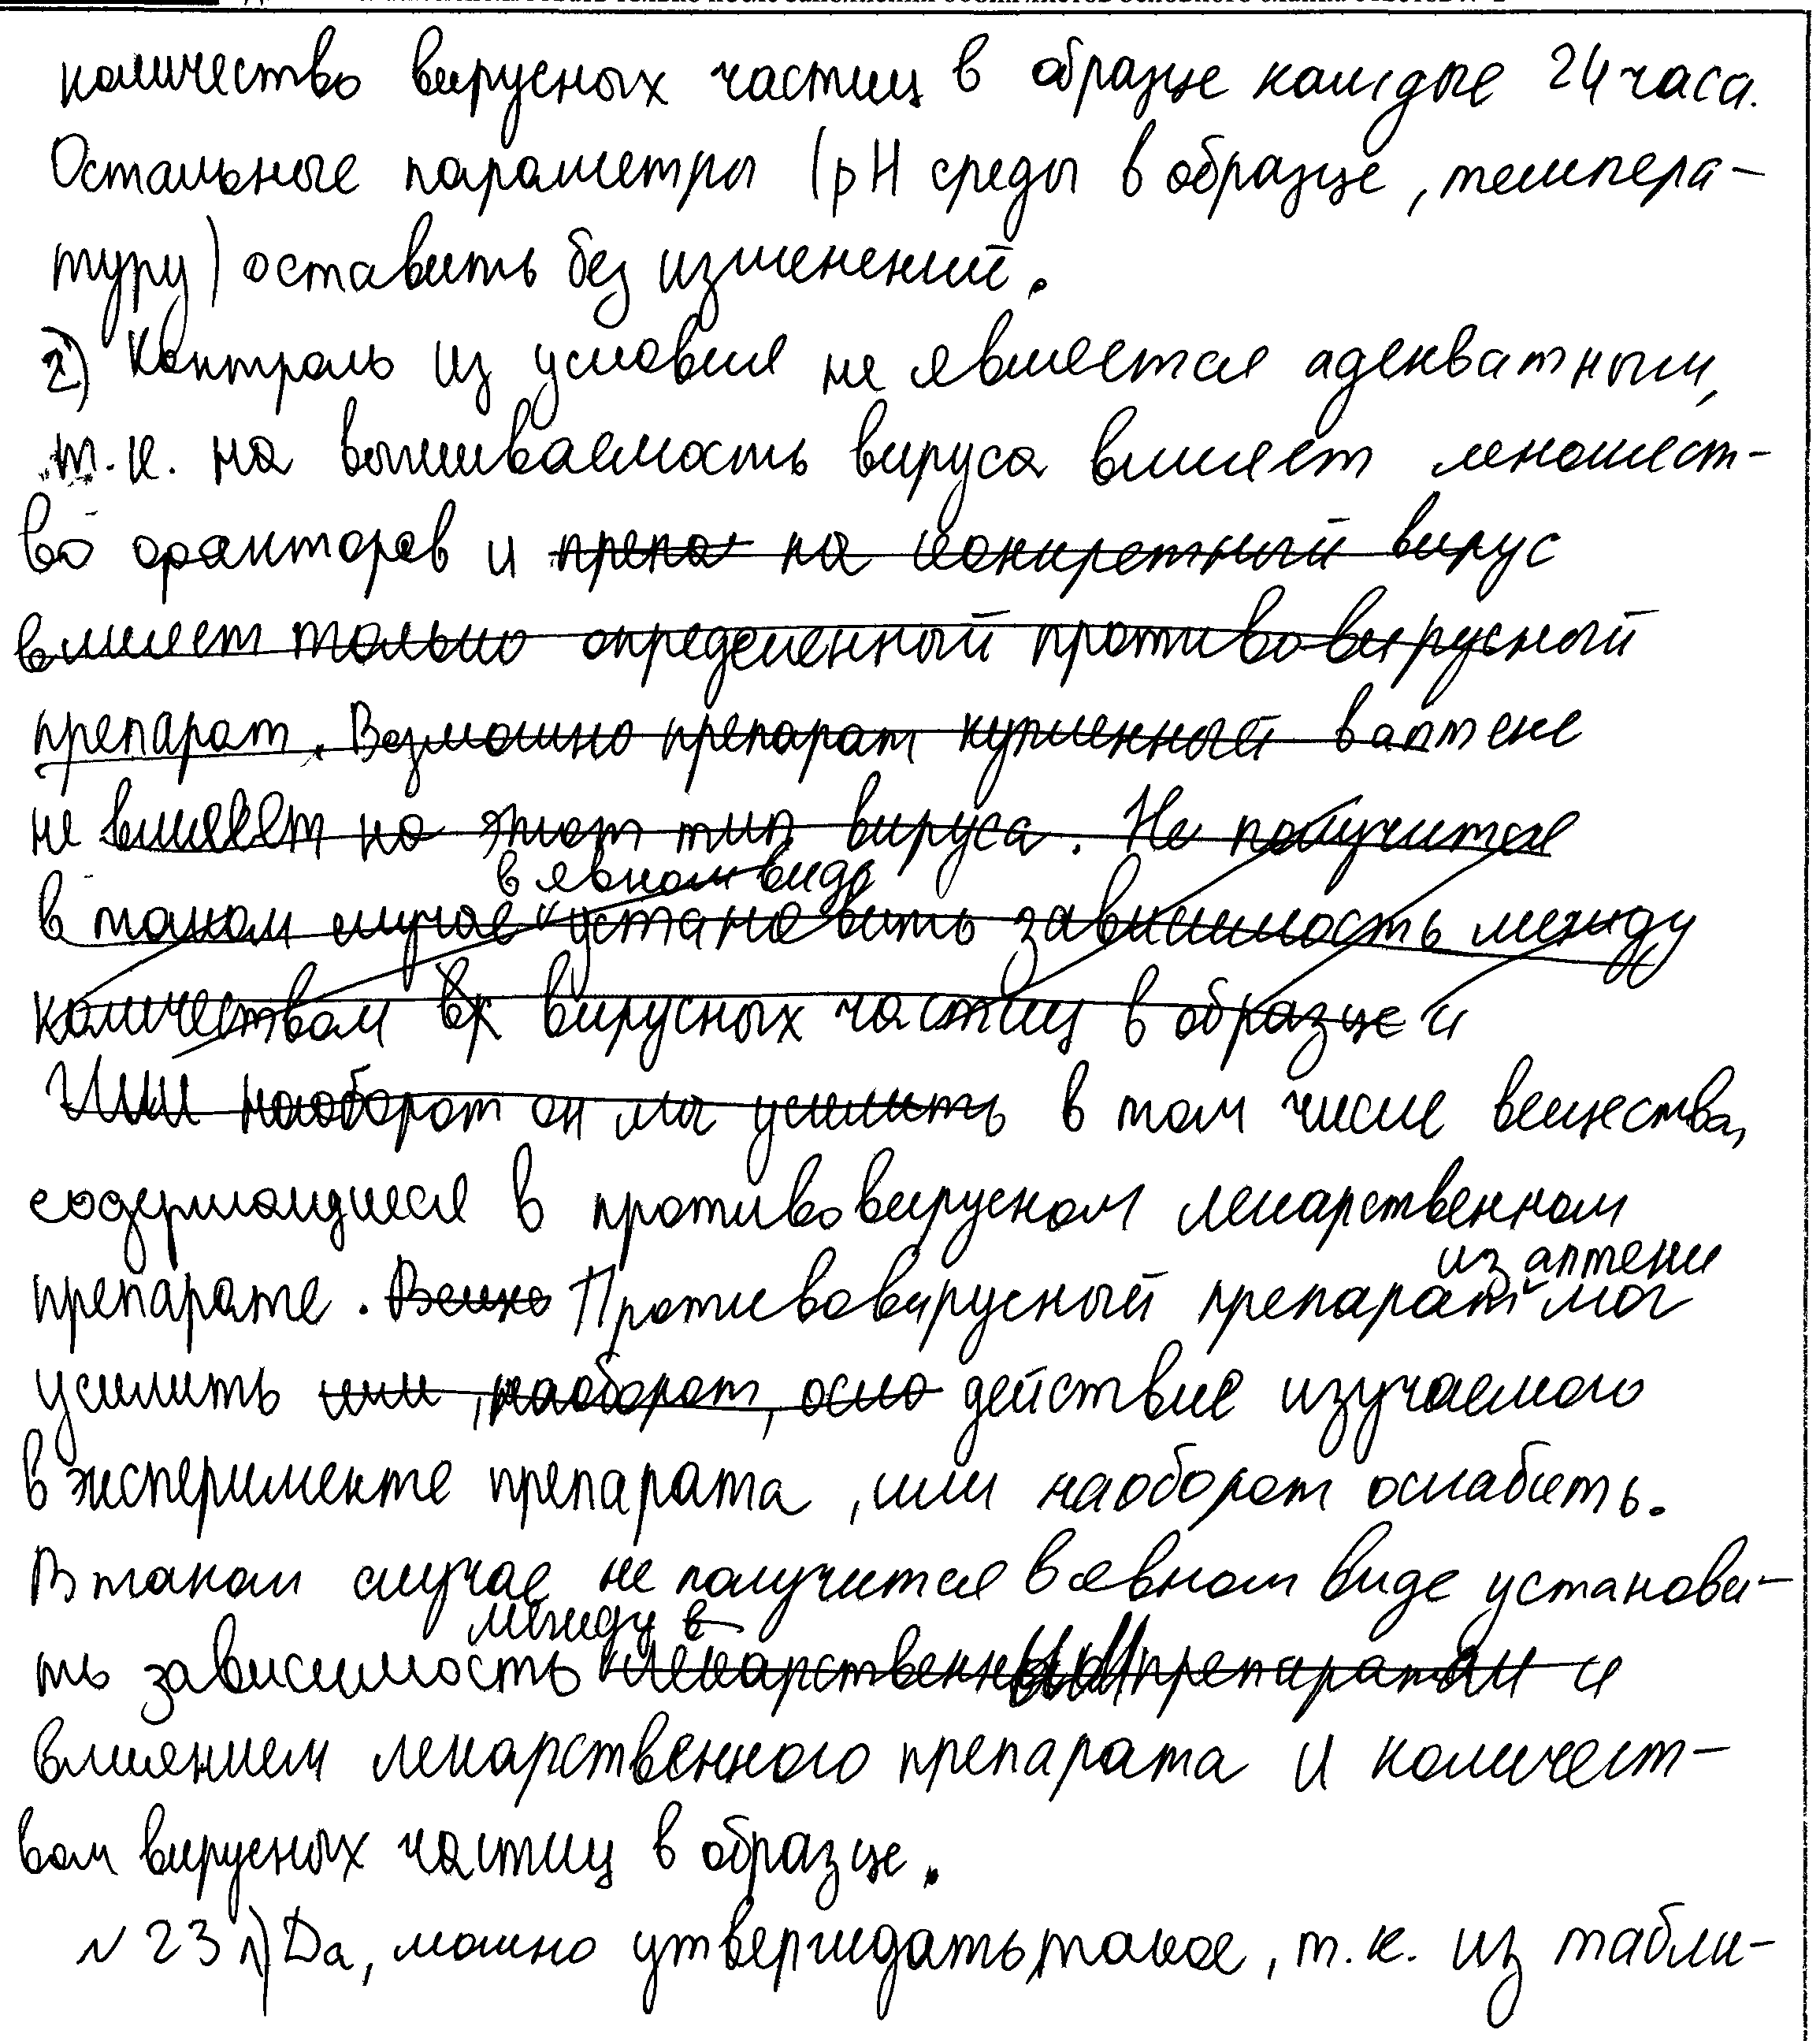 количество вирусных частиц в образце каждые 24 часа.
Остальные параметры (pH среды в образце, темпера-
туру) оставить без изменений.
2) Контроль из условия не является адекватным,
т.к. на выживаемость вируса влияет множест-
во факторов и препа на конкретный вирус
влияет только определенный противовирусный
препарат. Возможно препарат купленный в аптеке
не влияет на этот тип вируса. Не получится
в явном виде
в таком случае установить зависимость между
количеством вк вирусных частиц в образце и
Или наоборот он мог усилить в том числе вещества,
содержащиеся в противовирусном лекарственном
из аптеки
препарате. Противовирусный препарат мог
усилить или, наоборот, осла действие изучаемого
в эксперименте препарата, или наоборот ослабить.
В таком случае не получится в явном виде установи-
между в
ть зависимость лекарственным препаратом и
влиянием лекарственного препарата и количест-
вом вирусных частиц в образце.
№ 23 1) Да, можно утверждать такое, т.к. из табли-